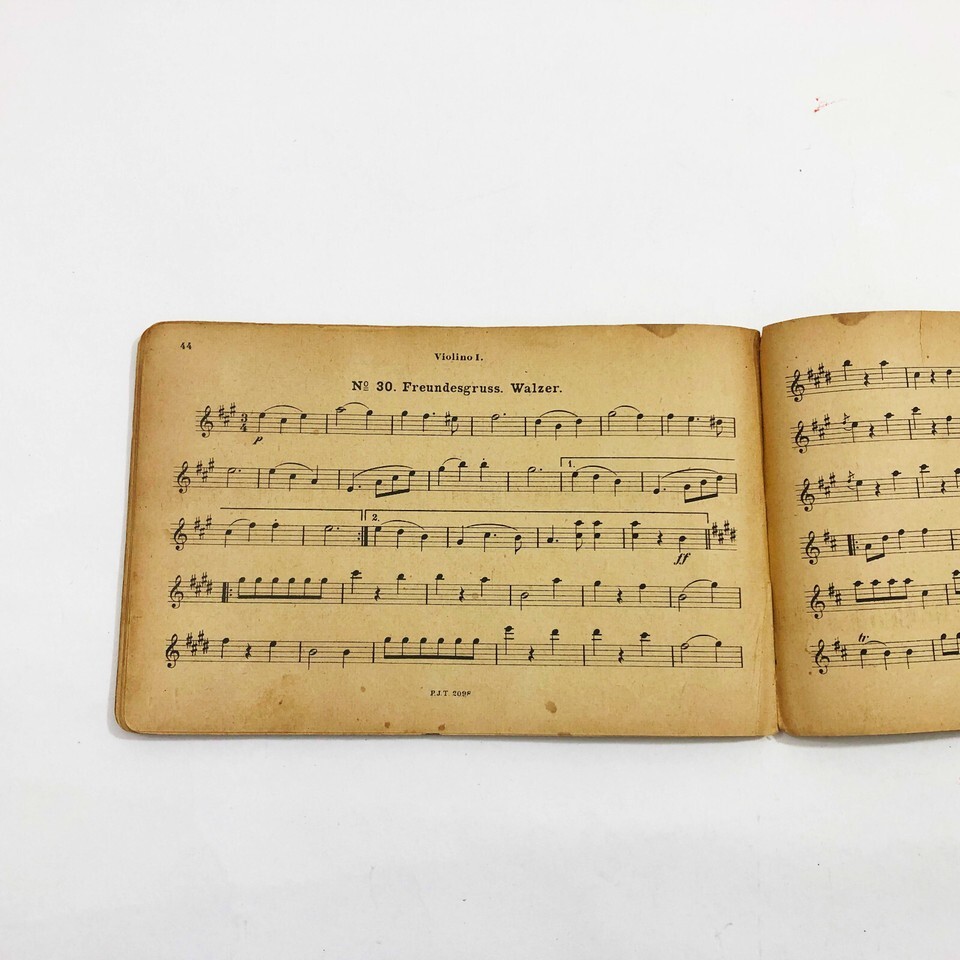 44
Violino I.
Nº 30. Freundesgruss. Walzer.
3
4
p
1.
2.
ff
P.J.T. 2098
tr.